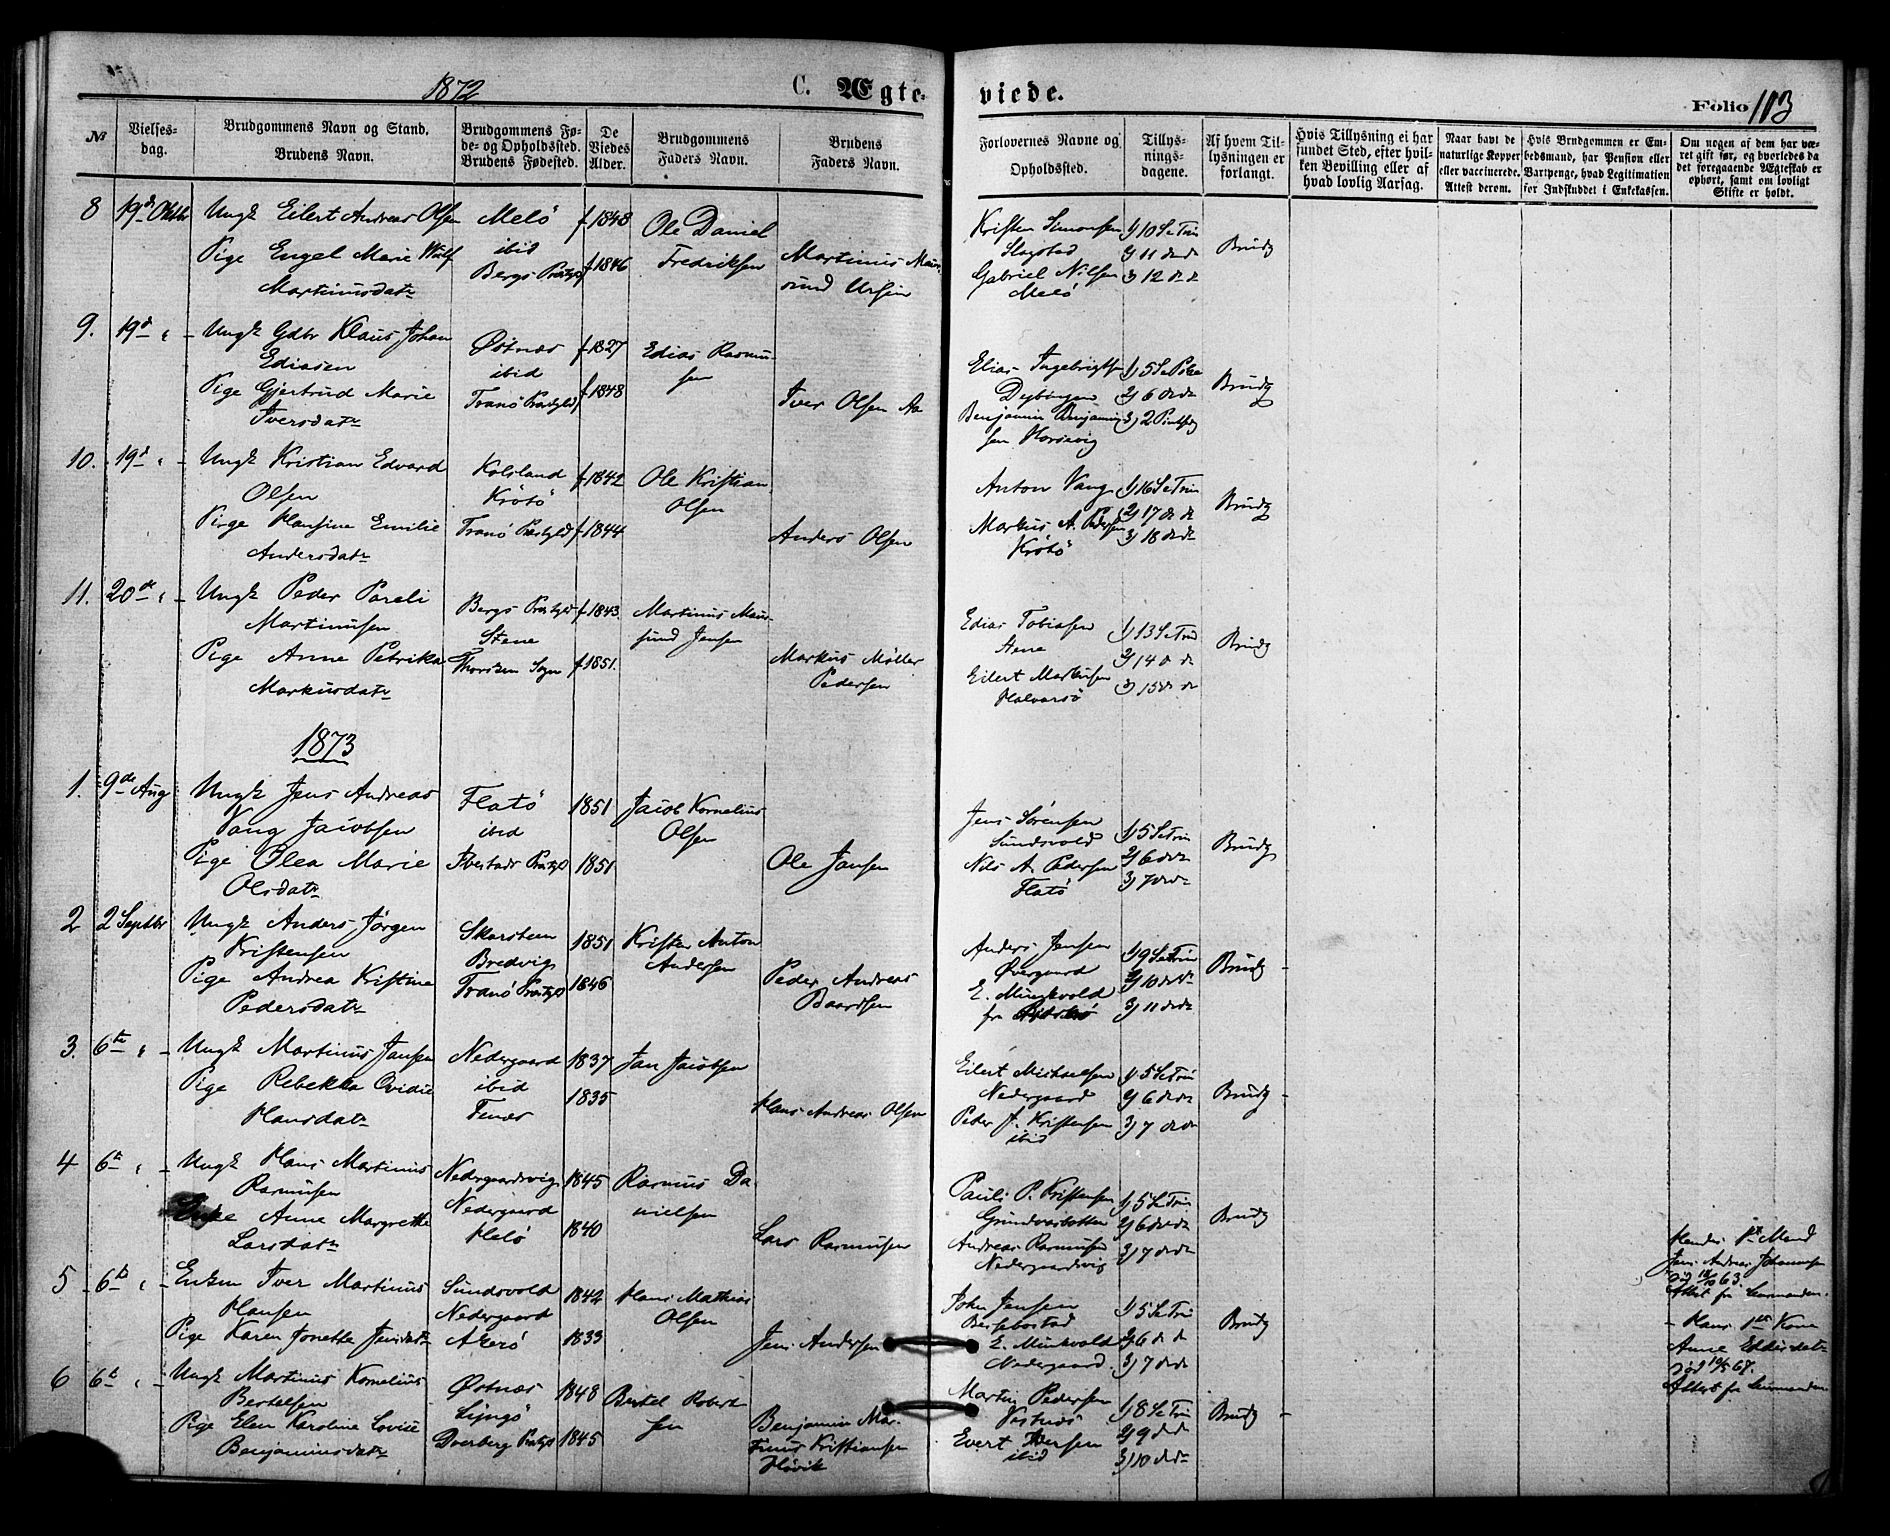 1872
C. Ægte-
viede.
Folio 113
№
Vielses-
dag.
Brudgommens Navn og Stand.
Brudens Navn.
Brudgommens Fø-
de- og Opholdsted.
Brudens Fødested.
De
Viedes
Alder.
Brudgommens
Faders Navn.
Brudens
Faders Navn.
Forlovernes Navne og
Opholdsted.
Tillys-
nings-
dagene.
Af hvem Til-
lysningen er
forlangt.
Hvis Tillysning ei har
fundet Sted, efter hvil-
ken Bevilling eller af
hvad lovlig Aarsag.
Naar havt de
naturlige Kopper
eller vaccinerede.
Attest derom.
Hvis Brudgommen er Em-
bedsmand, har Pension eller
Vartpenge, hvad Legitimation
for Indskuddet i Enkekassen.
Om nogen af dem har væ-
ret gift før, og hvorledes da
det foregaaende Ægteskab er
ophørt, samt om lovligt
Skifte er holdt.
8 19d Oktbr
Ungk Eilert Andreas Olsen
Pige Engel Marie Wulf
Martinusdatr
Melö
ibid
Bergs Præstgjd
f 1848
f 1846
Ole Daniel
Fredriksen
Martinus Maur-
sund Ursin
Kristen Simonsen
Slagstad
Gabriel Nilsen
Melö
1) 10 S e Trin
2) 11 d d
3) 12 d d
Brudg
9. 19d " -
Ungk Gdbr Klaus Johan
Ediasen
Pige Gjertrud Marie
Iversdatr
Östnæs
ibid
Tranö Præstgjeld
f 1827
f 1848
Edias Rasmu-
sen
Iver Olsen Aa
Elias Ingebrigtsen
Benjamin Benjamin-
sen
1) 5 S e Paaske
2) 6 d d
3) 2 Pintsedag
Brudg
10. 19d " -
Ungk Kristian Edvard
Olsen
Pige Hansine Emilie
Andersdatr
Kalsland
Krötö
Tranö Præstgjeld
f 1842
f 1844
Ole Kristian
Olsen
Anders Olsen
Anton Vang
Markus A. Pedersen
Krötö
1) 16 S e Trin
2) 17 d d
3) 18 d d
Brudg
11. 20de " -
Ungk Peder Pareli
Martinusen
Pige Anne Petrika
Markusdatr
Bergs Præstgjeld
Stene
Thorsken Sogn
f 1843.
f 1851.
Martinus Maur-
sund Jensen
Markus Möller
Pedersen
Edias Tobiasen
Stene
Eilert Markusen
Halvarsö
1) 13 S e Trin
2) 14 d d
3) 15 d d
Brudg
1873
1. 9de Aug
Ungk Jens Andreas
Vang Jacobsen
Pige Olea Marie
Olsdatr
Flatö
ibid
Ibestads Præstgjd
1851
1851
Jacob Kornelius
Olsen
Ole Jansen
Jens Sörensen
Sundsvold
Nils A. Pedersen
Flatö
1) 5 S e Trin
2) 6 d d
3) 7 d d
Brudg
2 2 Septbr
Ungk Anders Jörgen
Kristensen
Pige Andrea Kistine
Pedersdatr
Skarsteen
Bredvig
Tranö Præstgjd
1851
1846
Kristen Anton
Andersen
Peder Andreas
Baardsen
Anders Jensen
Övergaard
E. Munkvold
fra
1) 9 S e Trin
2) 10 d d
3) 11 d d
Brudg -
3. 6te " -
Ungk Martinus Jansen
Pige Rebekka Ovidie
Hansdatr
Nedergaard
ibid
Finnæs
1837
1835
Jan Jacobsen
Hans Andreas Olsen
Eilert Michaelsen
Nedergaard
Peder J. Kristensen
ibid
1) 5 S e Trin
2) 6 d d
3) 7 d d
Brudg -
4 6te " -
Ungk Hans Martinus
Rasmusen
Enke Anne Margrethe
Larsdatr
Nedergaardsvig
Nedergaard
Melö
1845
1840
Rasmus Da-
nielsen
Lars Rasmusen
Pauli P. Kristensen
Grundvasbotten
Andreas Rasmusen
Nedergaardsvig
1) 5 S e Trin
2) 6 d d
3) 7 d d
Brudg
Hendes 1ste Mand
Jens Andreas Johannesen
död 63.
Attest fra Lensmanden.
5 6te " -
Enkm Iver Martinus
Hansen
Pige Karen Jonette Jensdatr
Sundsvold
Nedergaard
Akerö
1842
1833
Hans Mathias
Olsen
Jens Andersen
John Jensen
E. Munkvold
Nedergaard
1) 5 S e Trin
2) 6 d d
3) 7 d d
Brudg
- Hans 1ste Kone
Anne
död 67.
Attest fra Lensmanden
6 6te " -
Ungk Martinus Kornelius
Bertelsen
Pige Elen Karoline Lovise
Benjaminsdatr
Östnæs
Lyngö
Dverberg Præstgd
1848
1845
Bertel Robert-
sen
Benjamin Mar-
tinus Kristiansen
Hövik
Martin Pedersen
Vestnæs
Evert Iversen
ibid
1) 8 S e Trin
2) 9 d d
3) 10 d d
Brudg -